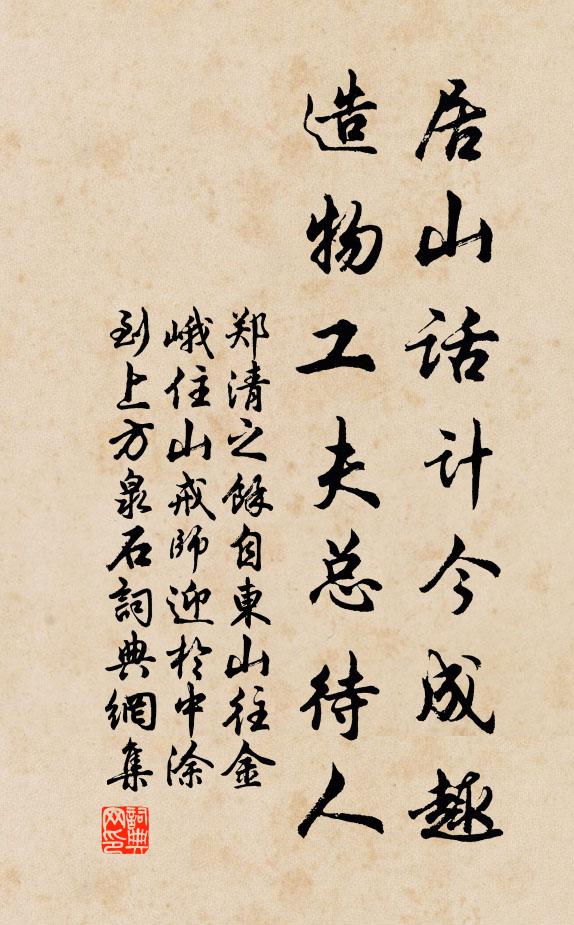 居山话计今成趣
造物工夫总待人
郑清之馀自東山往金
峨住山戒師迎於中涂
到上方泉石詞典網集
詞典網印